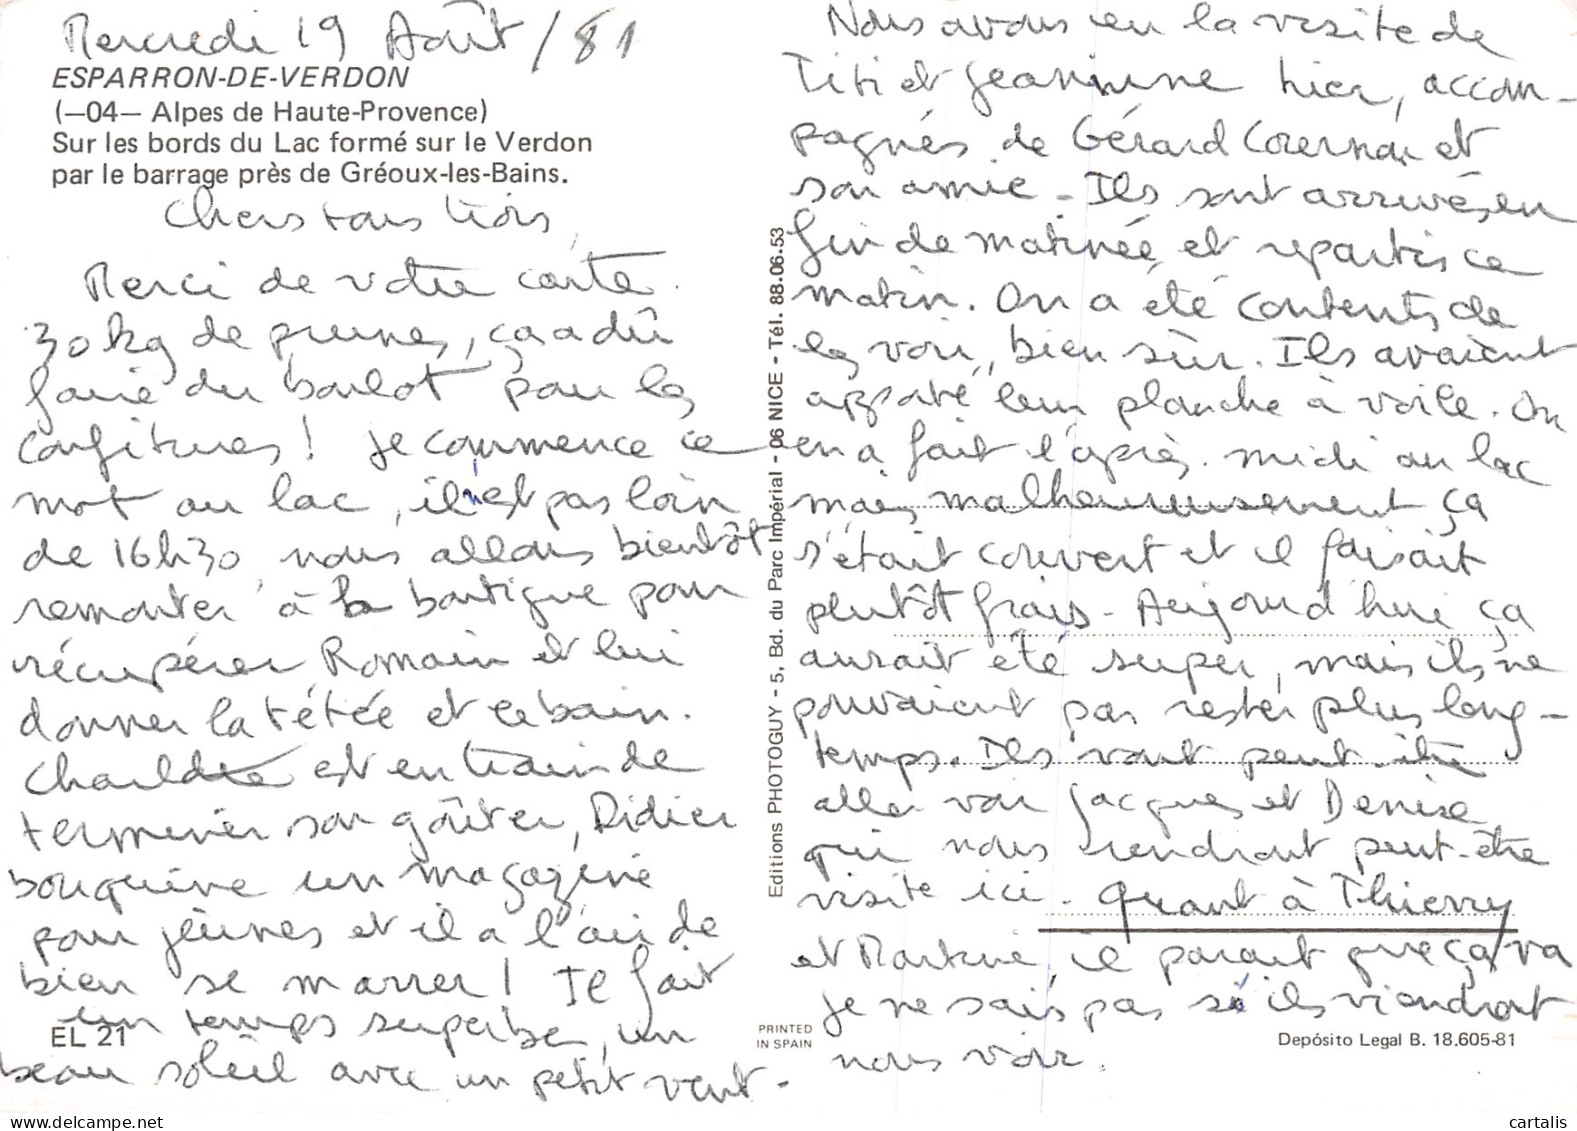 Mercredi 19 Août / 81
ESPARRON-DE-VERDON
(—04— Alpes de Haute-Provence)
Sur les bords du Lac formé sur le Verdon
par le barrage près de Gréoux-les-Bains.
Chers tous trois,
Merci de votre carte.
30 kg de prunes, ça a dû
faire du boulot pour les
confitures ! Je commence ce
mot au lac, il n'est pas loin
de 16h30, nous allons bientôt
remonter à la boutique pour
récupérer Romain et lui
donner la tétée et le bain.
est en train de
terminer son goûter, Didier
bouquine un magazine
pour jeunes et il a l'air de
bien se marrer ! Il fait
un temps superbe, un
beau soleil avec un petit vent.
EL 21
Editions PHOTOGUY - 5, Bd. du Parc Impérial - 06 NICE - Tél. 88.06.53
PRINTED
IN SPAIN
Nous avons eu la visite de
Titi et Jeannine hier, accom-
pagnés de Gérard et
son amie - Ils sont arrivés en
fin de matinée et repartis ce
matin. On a été contents de
les voir, bien sûr. Ils avaient
apporté leur planche à voile. On
en a fait l'après-midi au lac
mais malheureusement ça
s'était couvert et il faisait
plutôt frais - Aujourd'hui ça
aurait été super, mais ils ne
pouvaient pas rester plus long-
temps. Ils vont peut-être
aller voir Jacques et Denise
qui nous rendront peut-être
visite ici. Quant à Thierry
et Martine, il paraît que ça va
je ne sais pas si ils viendront
nous voir.
Depósito Legal B. 18.605-81
cartalis